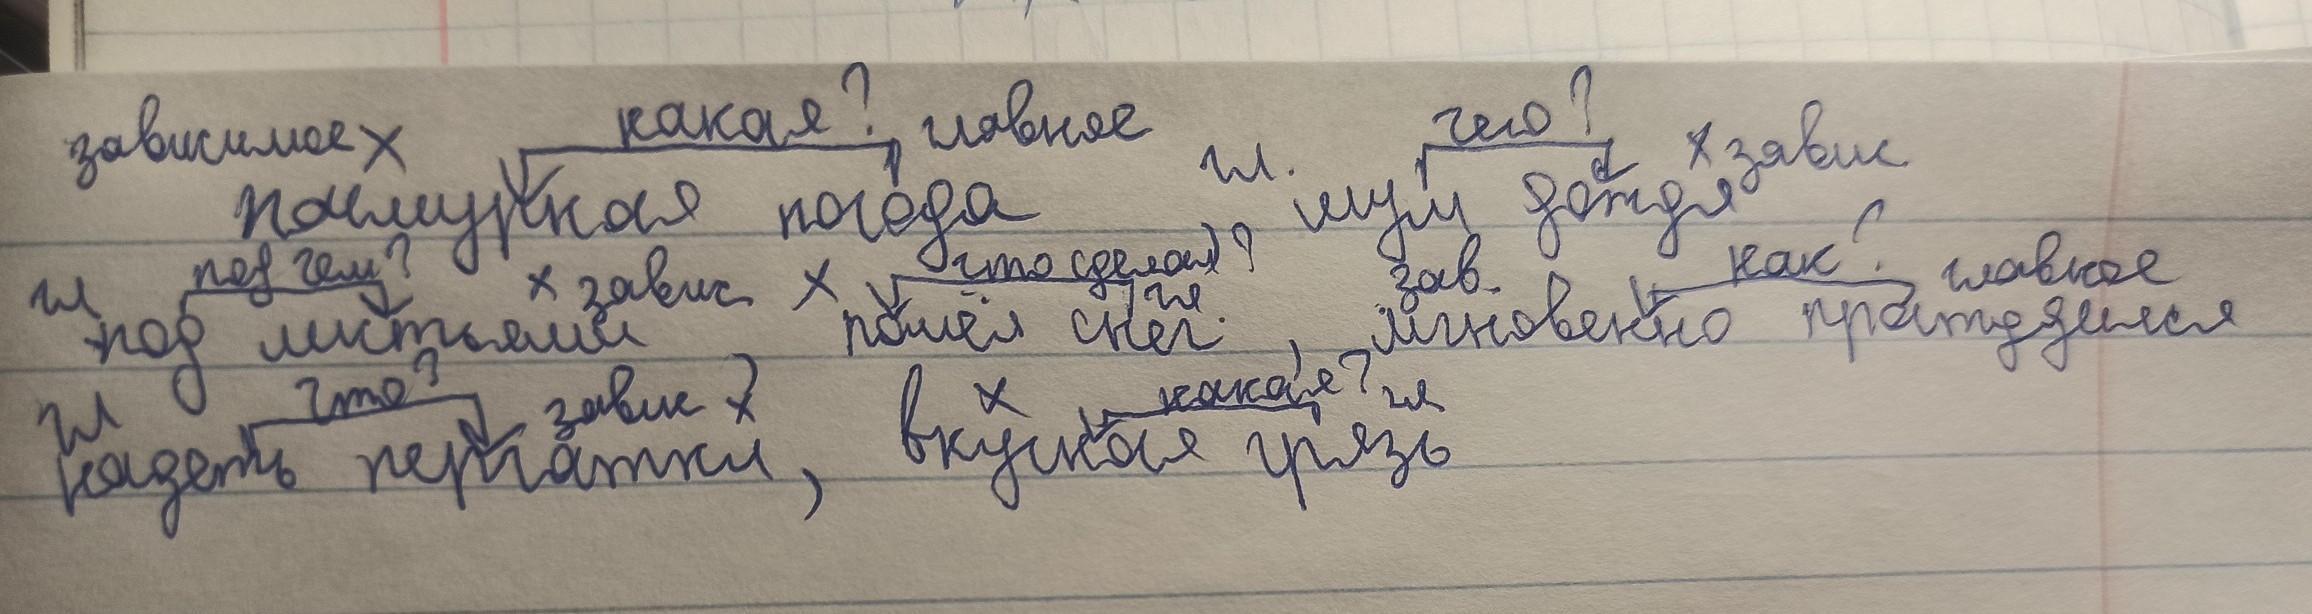 зависимое х какая? главное чего? х завис
пасмурная погода гл. шум дождя
гл под чем? х завис х что сделал? гл зав. как? главное
под листьями пошёл снег, мгновенно пратдяился
гл что? завис х х какая? гл
надеть перчатки, вкусная грязь